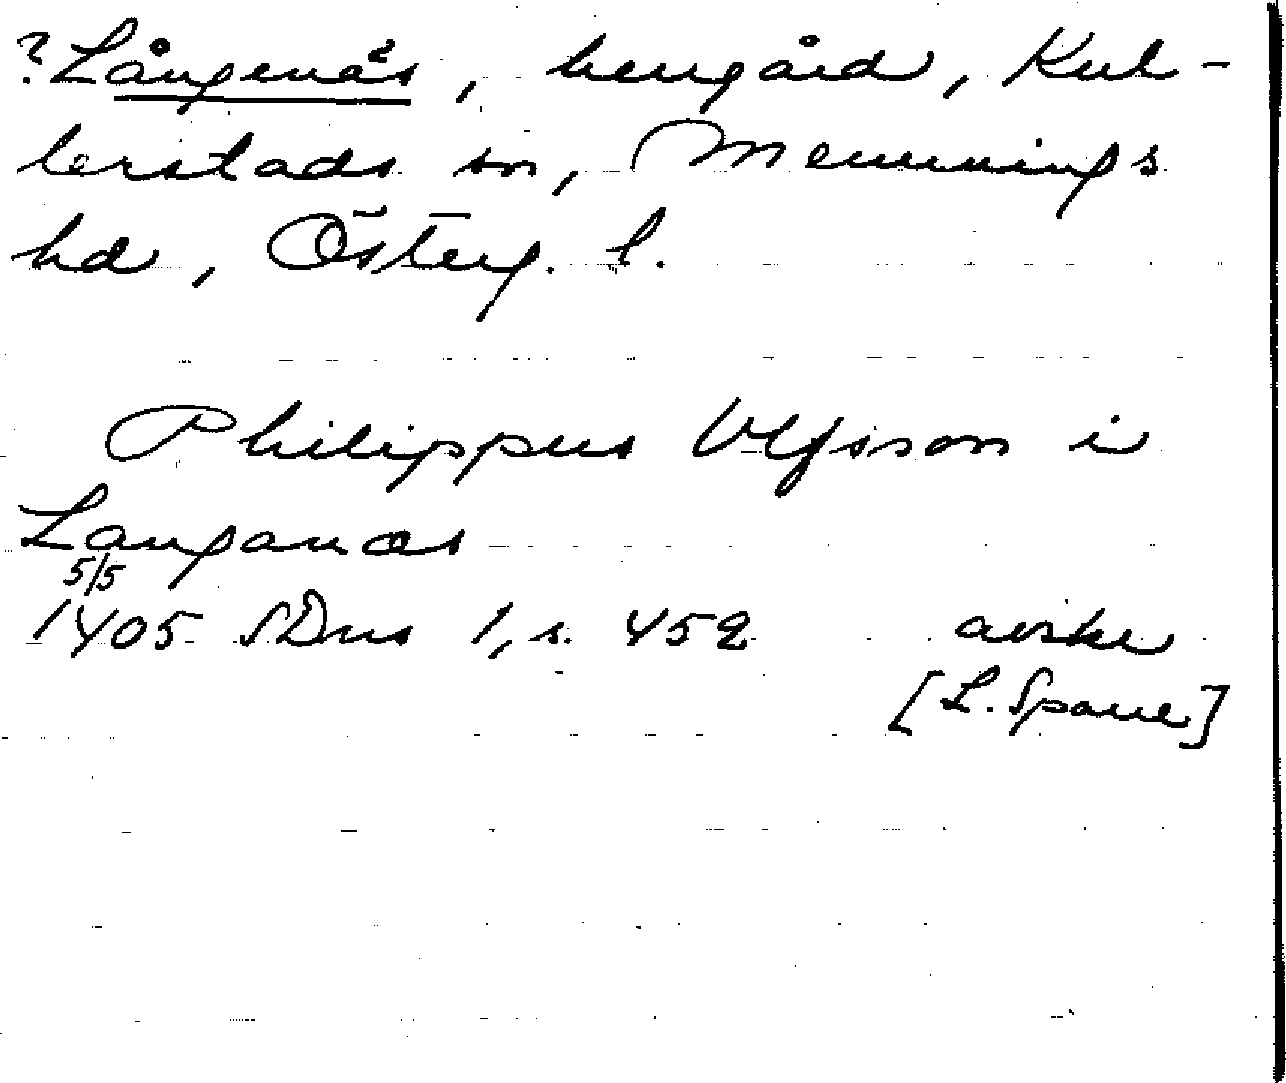 ? Långenäs, herrgård, Kul-
lerstads sn, Memmings
hd, Österg. l.
Philippus Vlfsson i
Langanæs
5/5
1405 SDns 1, s. 452 avskr
[L. Sparre]